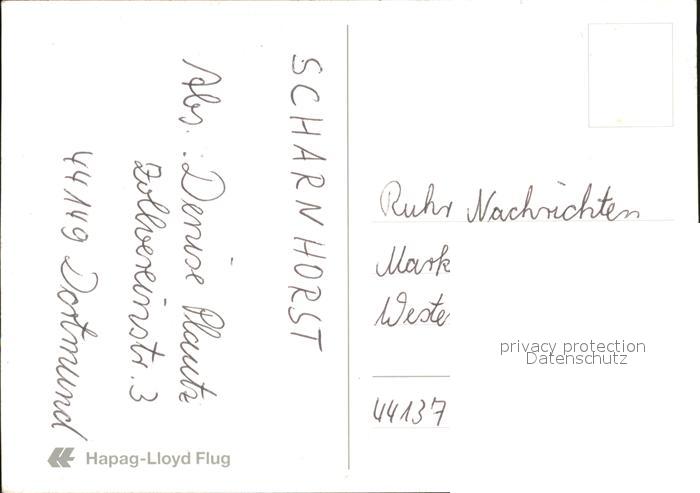 SCHARNHORST
Abs.: Denise Plautz
Zollvereinstr. 3
44149 Dortmund
Hapag-Lloyd Flug
Ruhr Nachrichten
Mark
Weste
44137
privacy protection
Datenschutz